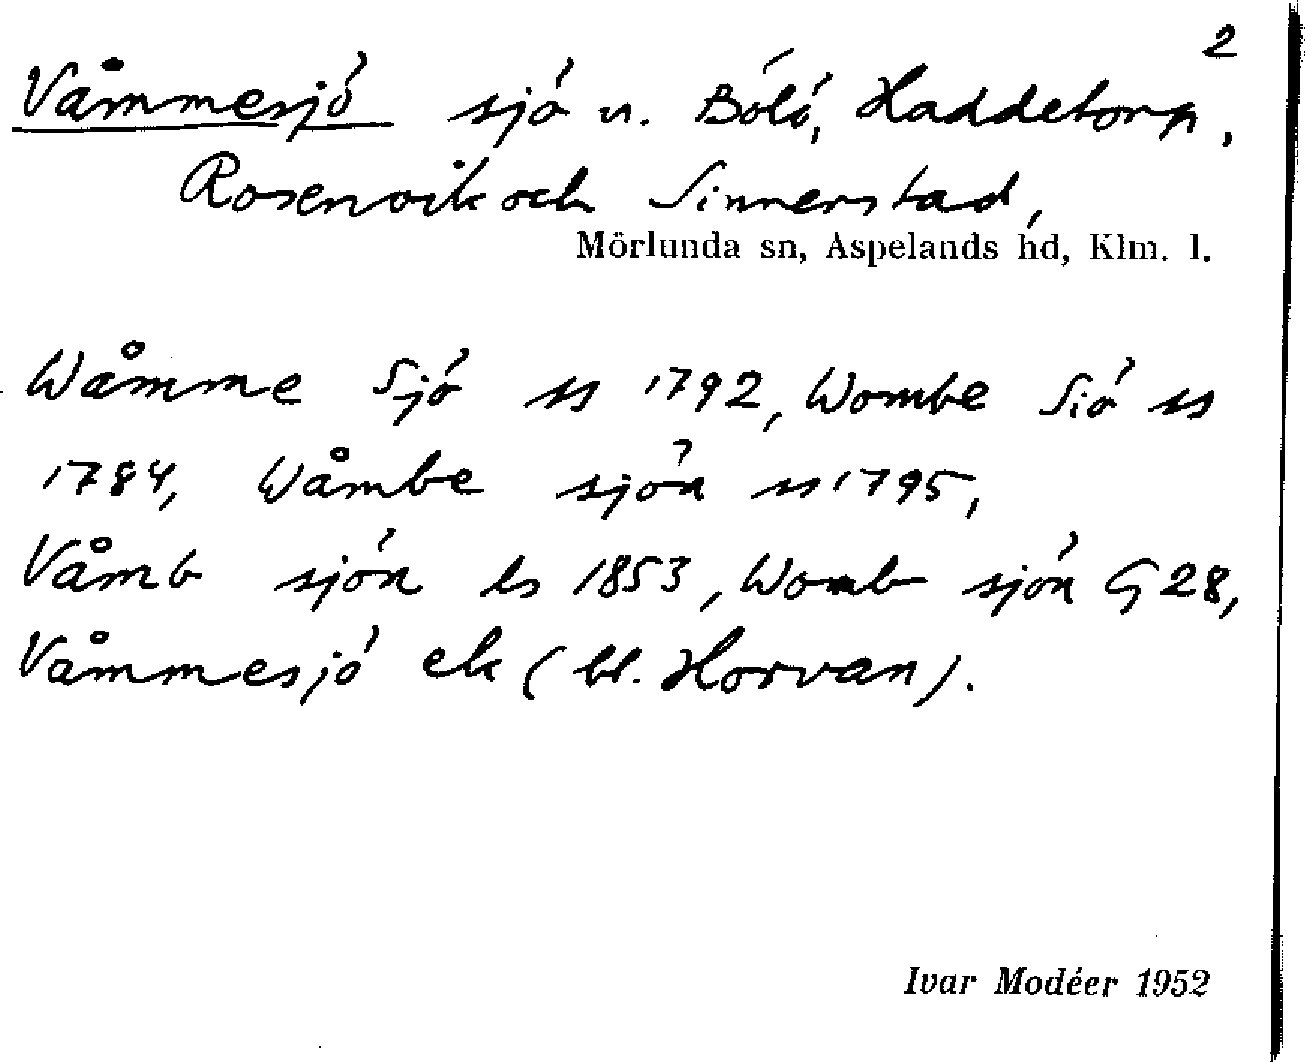 2
Våmmesjö sjö u. Bölö, Haddetorp,
Rosenvik och Sinnerstad,
Mörlunda sn, Aspelands hd, Klm. l.
Wåmme Sjö ss 1792, Wombe Siö ss
1784, Wåmbe sjön ss 1795,
Våmb sjön ls 1853, Womb sjön G 28,
Våmmesjö ek (bl. Horvan).
Ivar Modéer 1952